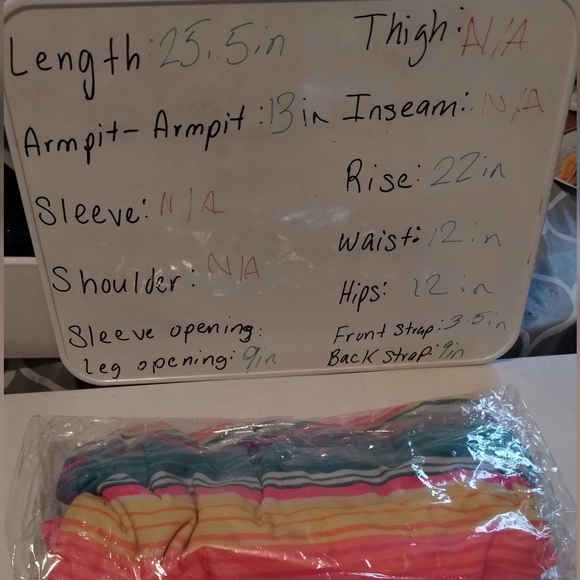 Length: 25.5in
Armpit-Armpit: 13in
Sleeve: N/A
Shoulder: N/A
Sleeve opening:
Leg opening: 9in
Thigh: N/A
Inseam: N/A
Rise: 22in
Waist: 12in
Hips: 12in
Front strap: 3.5in
Back strap: 9in